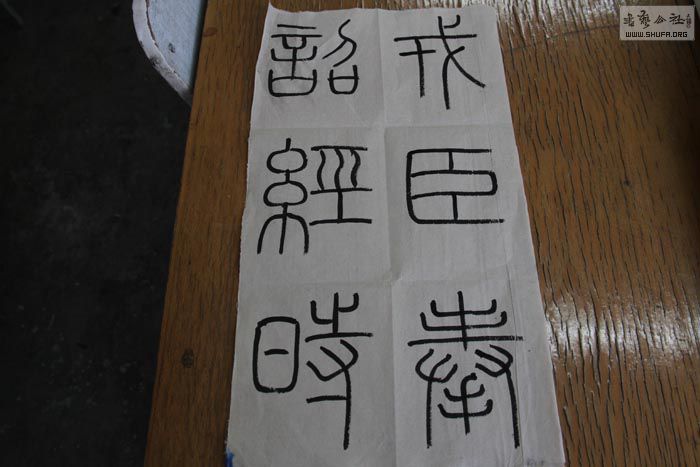 戎臣奉
詔經時
書藝公社
WWW.SHUFA.ORG